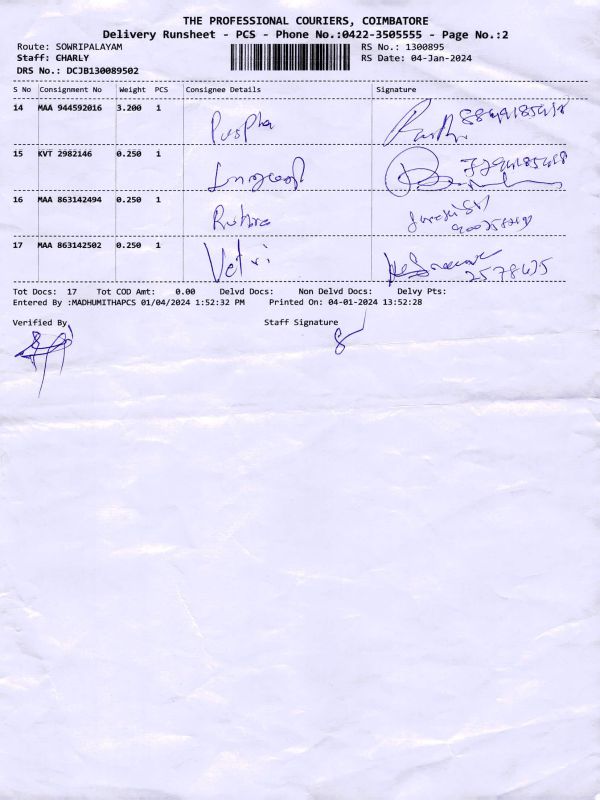 THE PROFESSIONAL COURIERS, COIMBATORE
Delivery Runsheet - PCS - Phone No.:0422-3505555 - Page No.:2
Route: SOWRIPALAYAM RS No.: 1300895
Staff: CHARLY RS Date: 04-Jan-2024
DRS No.: DCJB130089502
S No Consignment No Weight PCS Consignee Details Signature
14 MAA 944592016 3.200 1 Puspha
15 KVT 2982146 0.250 1
16 MAA 863142494 0.250 1
17 MAA 863142502 0.250 1 Vetri
Tot Docs: 17 Tot COD Amt: 0.00 Delvd Docs: Non Delvd Docs: Delvy Pts:
Entered By :MADHUMITHAPCS 01/04/2024 1:52:32 PM Printed On: 04-01-2024 13:52:28
Verified By Staff Signature